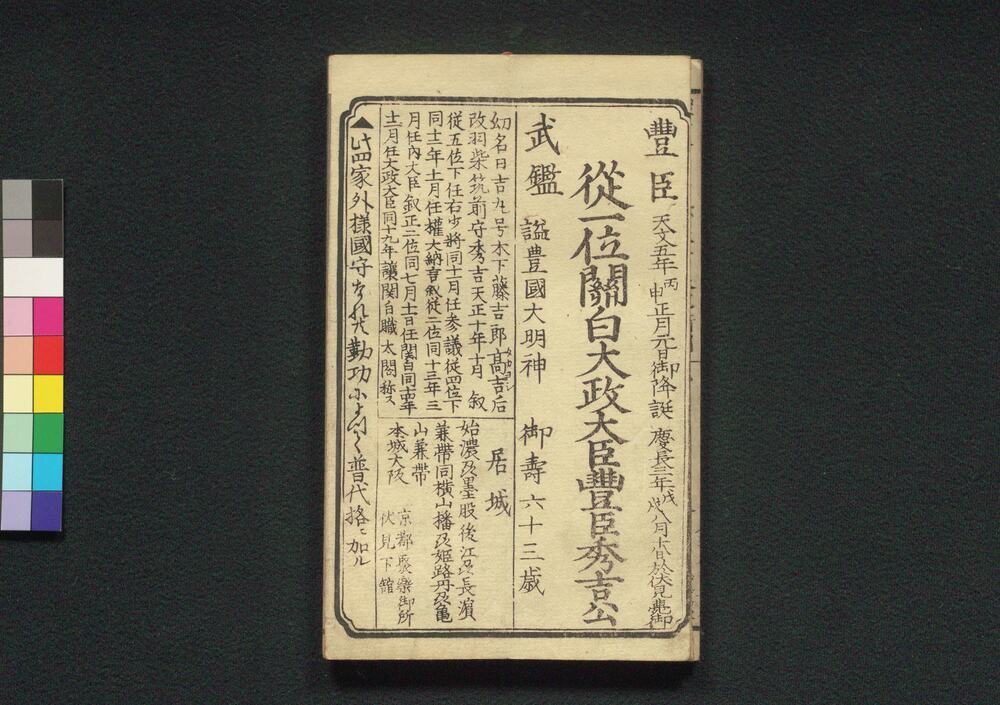 豐臣 天文五年丙申正月元日御降誕 慶長三年戊戌八月十八日於伏見薨御
從一位關白太政大臣豐臣秀吉公
武鑑 謚豊國大明神 御壽六十三歳
幼名日吉丸号木下藤吉郎高吉后
改羽柴筑前守秀吉天正十年十月 叙
従五位下任右少將同十一月任参議従四位下
同十二年十一月任權大納言叙従二位同十三年三
月任内大臣 叙正二位同七月十一日任関白同十四年
十二月任太政大臣同十九年讓関白職 太閤称ス
居城
始濃及墨股後江及長濵
兼帯同横山播及姫路丹及亀
山兼帯
本城大阪 京都聚樂御所
伏見下舘
▲此四家外様國守なれ共勤功によつて普代格ニ加ル